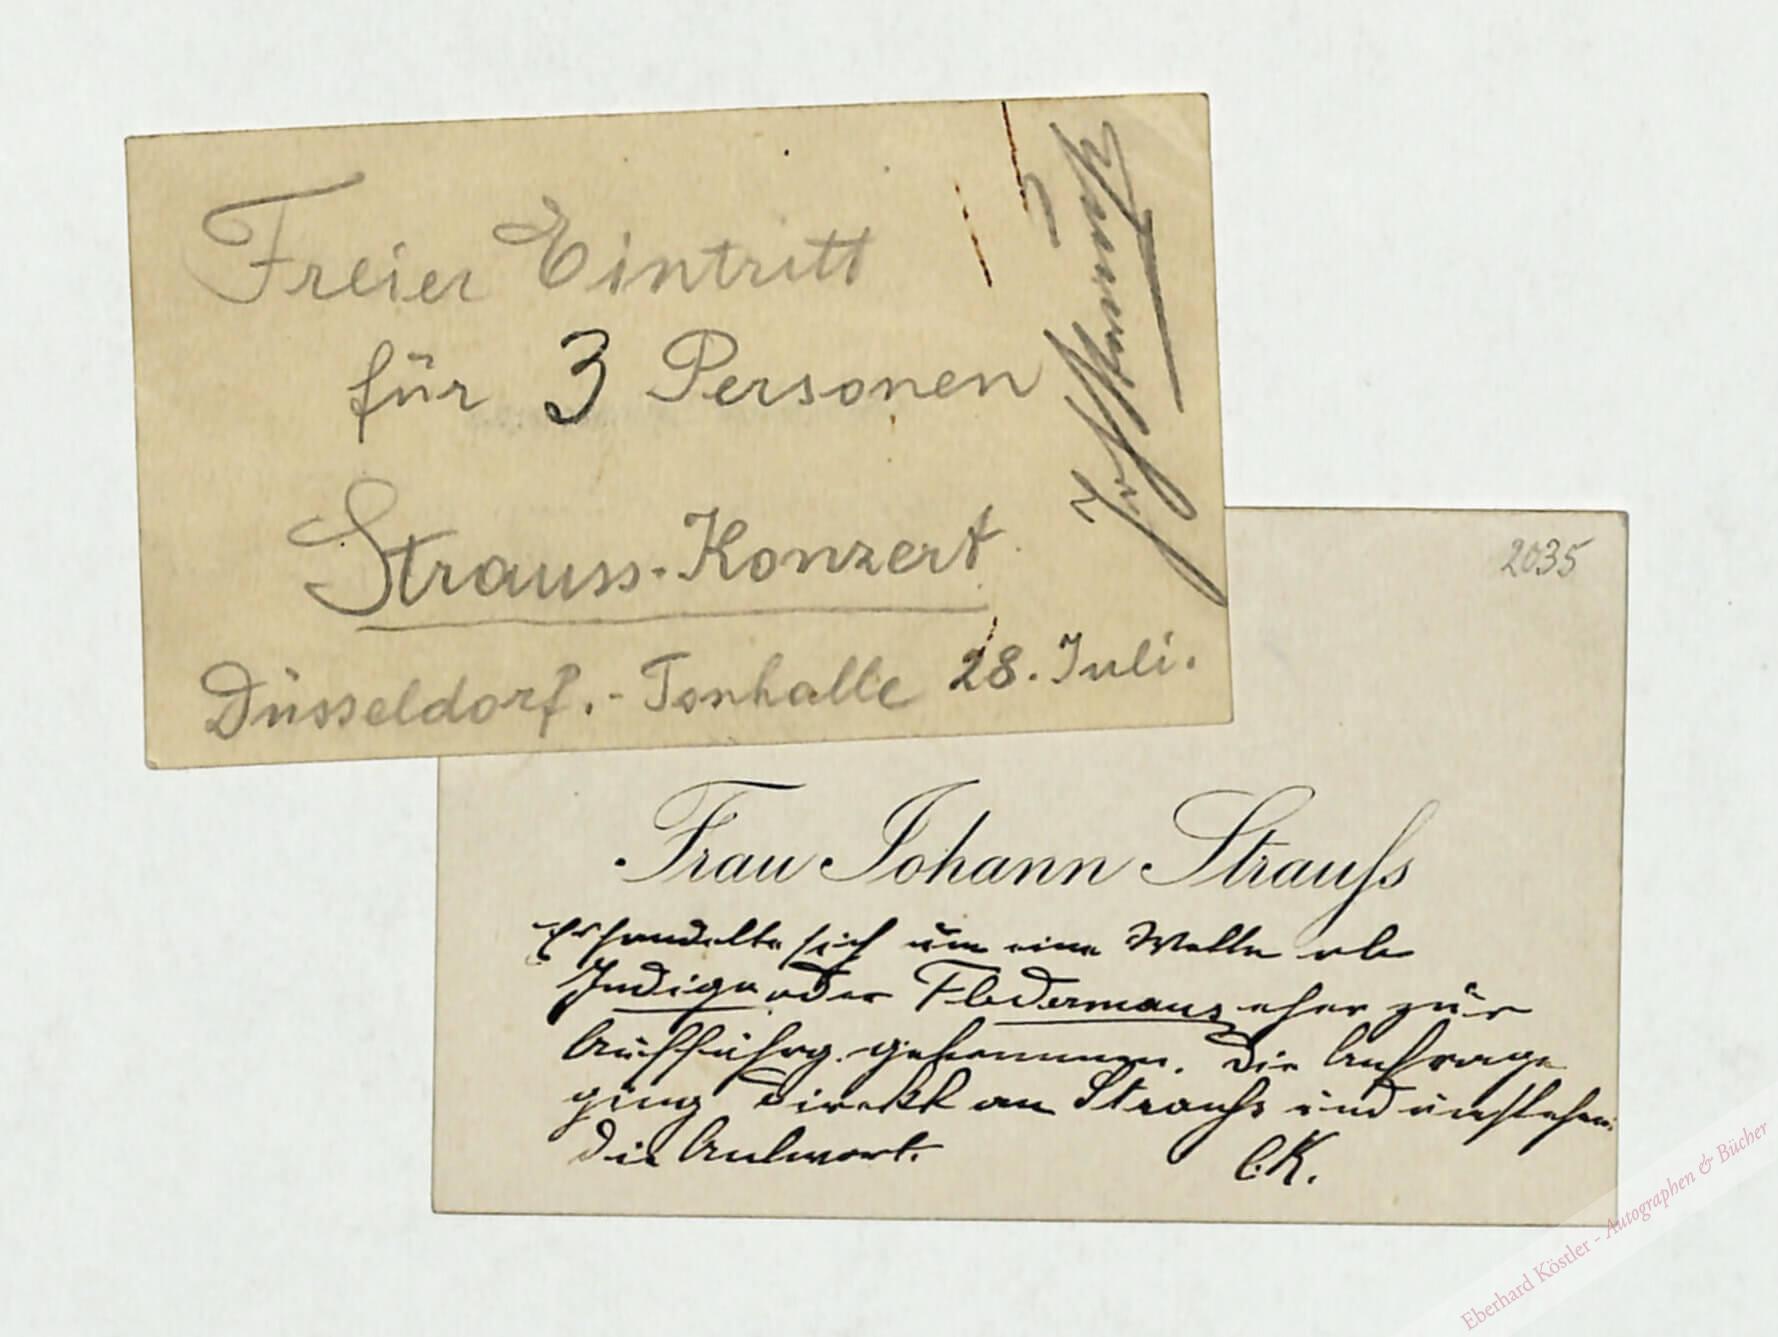 Freier Eintritt
für 3 Personen
Strauss-Konzert
Düsseldorf.-Tonhalle 28. Juli.
2035
Frau Johann Strauſs
Es handelte sich um eine Wette ob
Indigo oder Fledermaus eher zur
Aufführg. gekommen. Die Anfrage
ging direkt an Strauss und umstehend
die Antwort.
C.K.
Eberhard Köstler - Autographen & Bücher